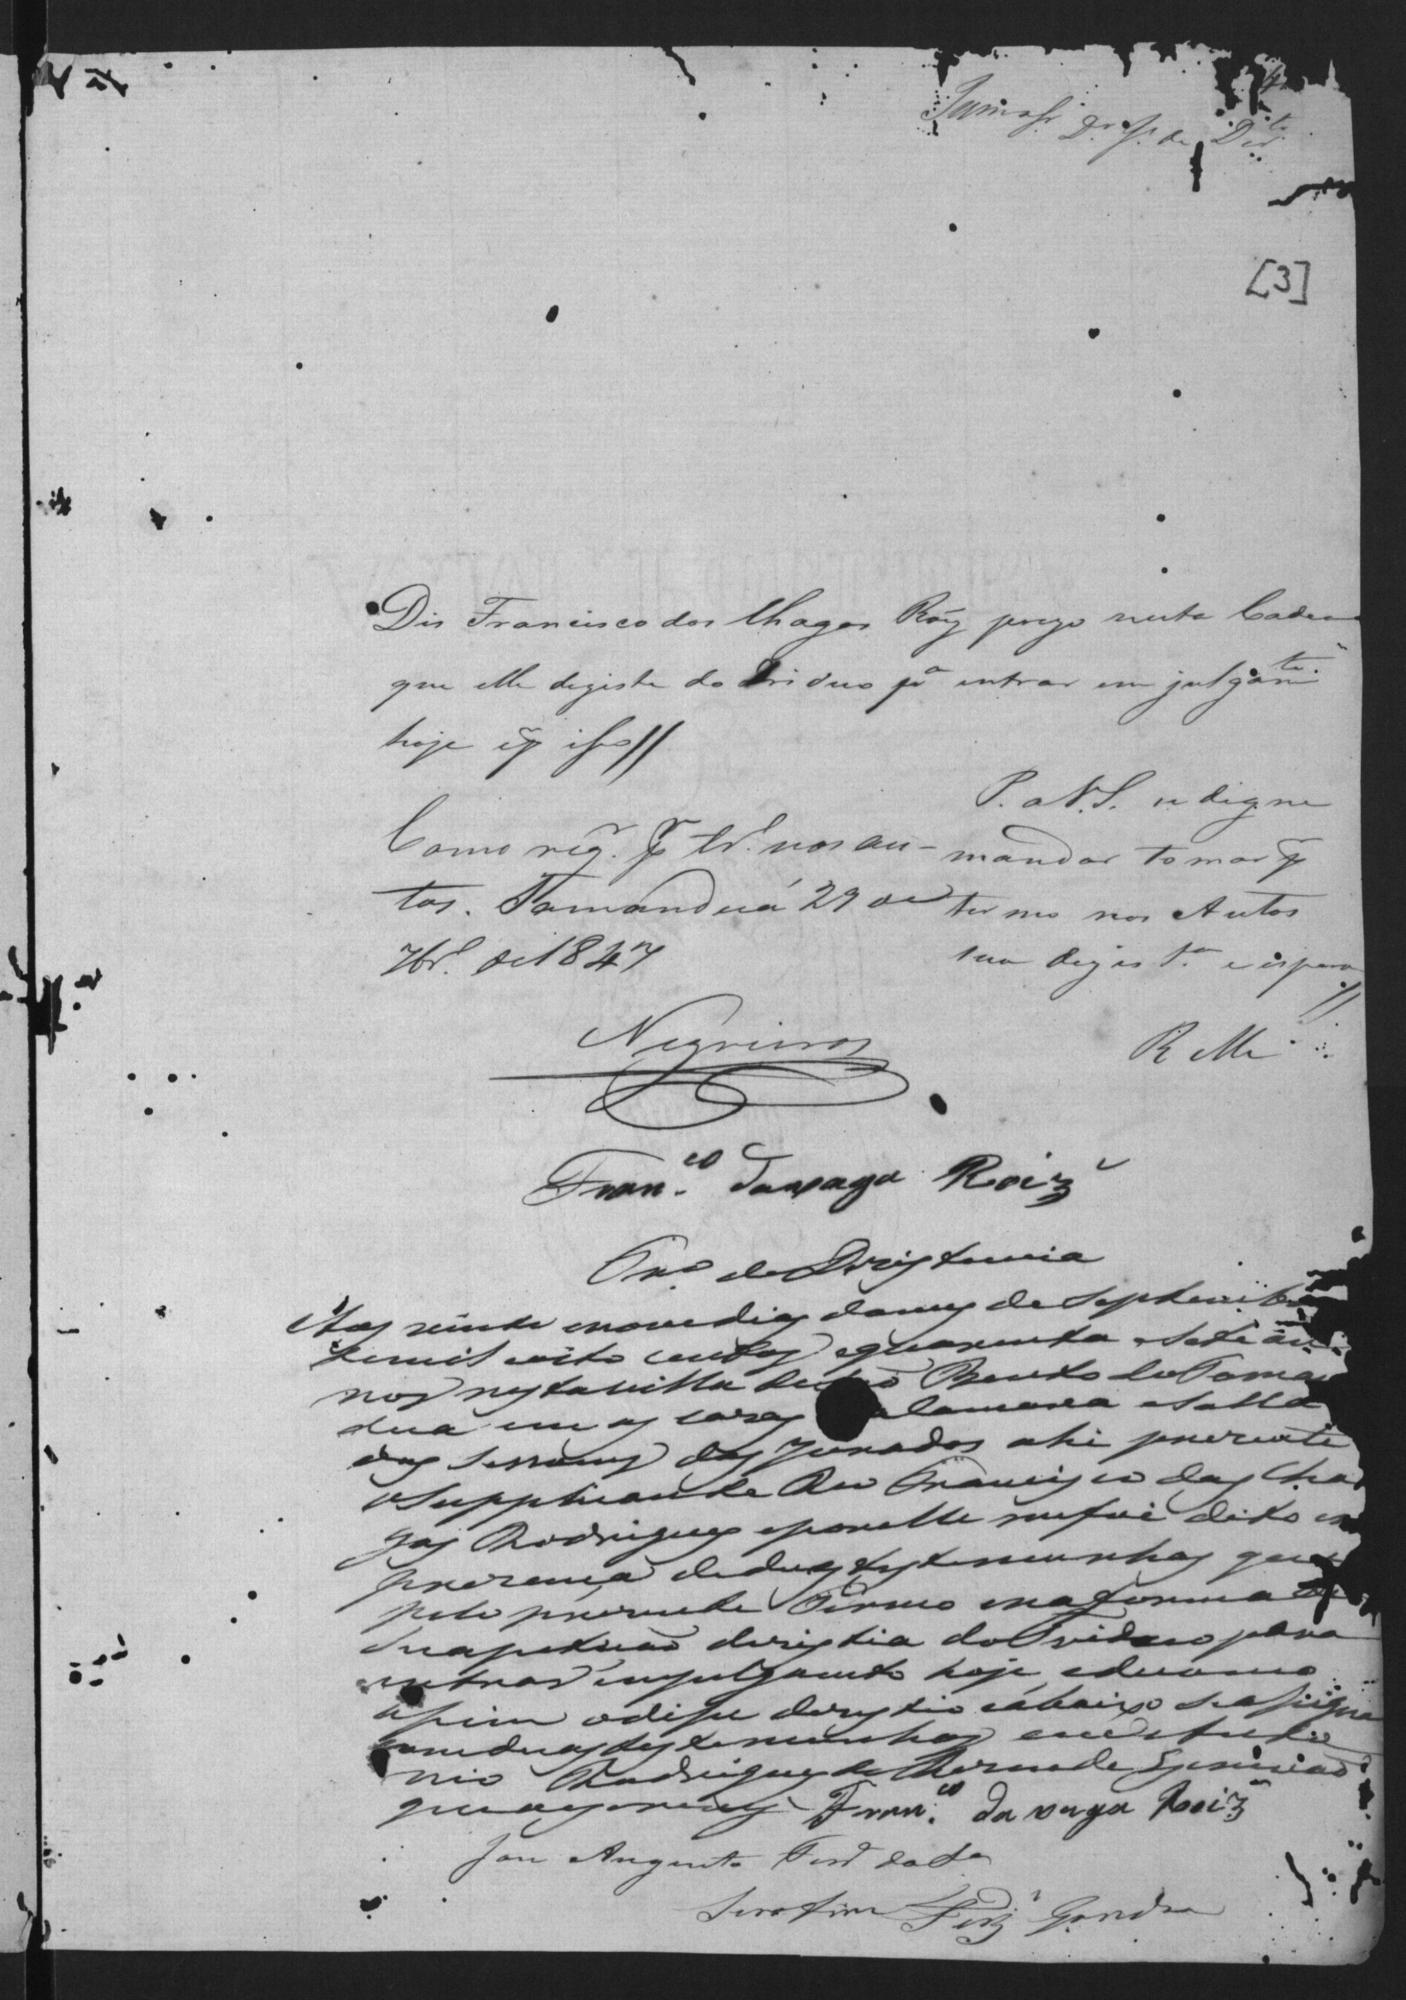 Dr. J. de Dirto.
[3]
Dis Francisco das Chagas Roiz prezo nesta Cadea
que elle deziste do Triduo pa entrar em julgamto.
hoje e p isso //
P. a V.S. se digne
mandar tomar p
termo nos Autos
sua dezista e espera
R Mce
Como req. p tr.º nos au-
tos. Tamanduá 29 de
7br.º de 1847
Negreiros
Franco. daxaga Roiz
Tr.º de Dezistencia
Aos vinte e nove dias do mes de Septembro
de mil oito centos e quarenta e sete an
nos nesta villa de São Bento do Taman
dua em as cazas da Camara e Salla
das Sessoens dos Jurados ahi prezente
o Supplicante Reo Francisco das Cha
gas Rodrigues e por elle me foi dito em
prezença de duas testemunhas que
pelo prezente Termo e na forma de
sua petição dezistia do Triduo para
entrar em julgamento hoje e de como
assim o disse dezistio e abaixo se assigna
com duas testemunhas
nio Rodrigues de Escrivão
que a escrevy Franco. da xaga Roiz
Jose Augusto Ferr da Sa
Serafim Frz Gondra